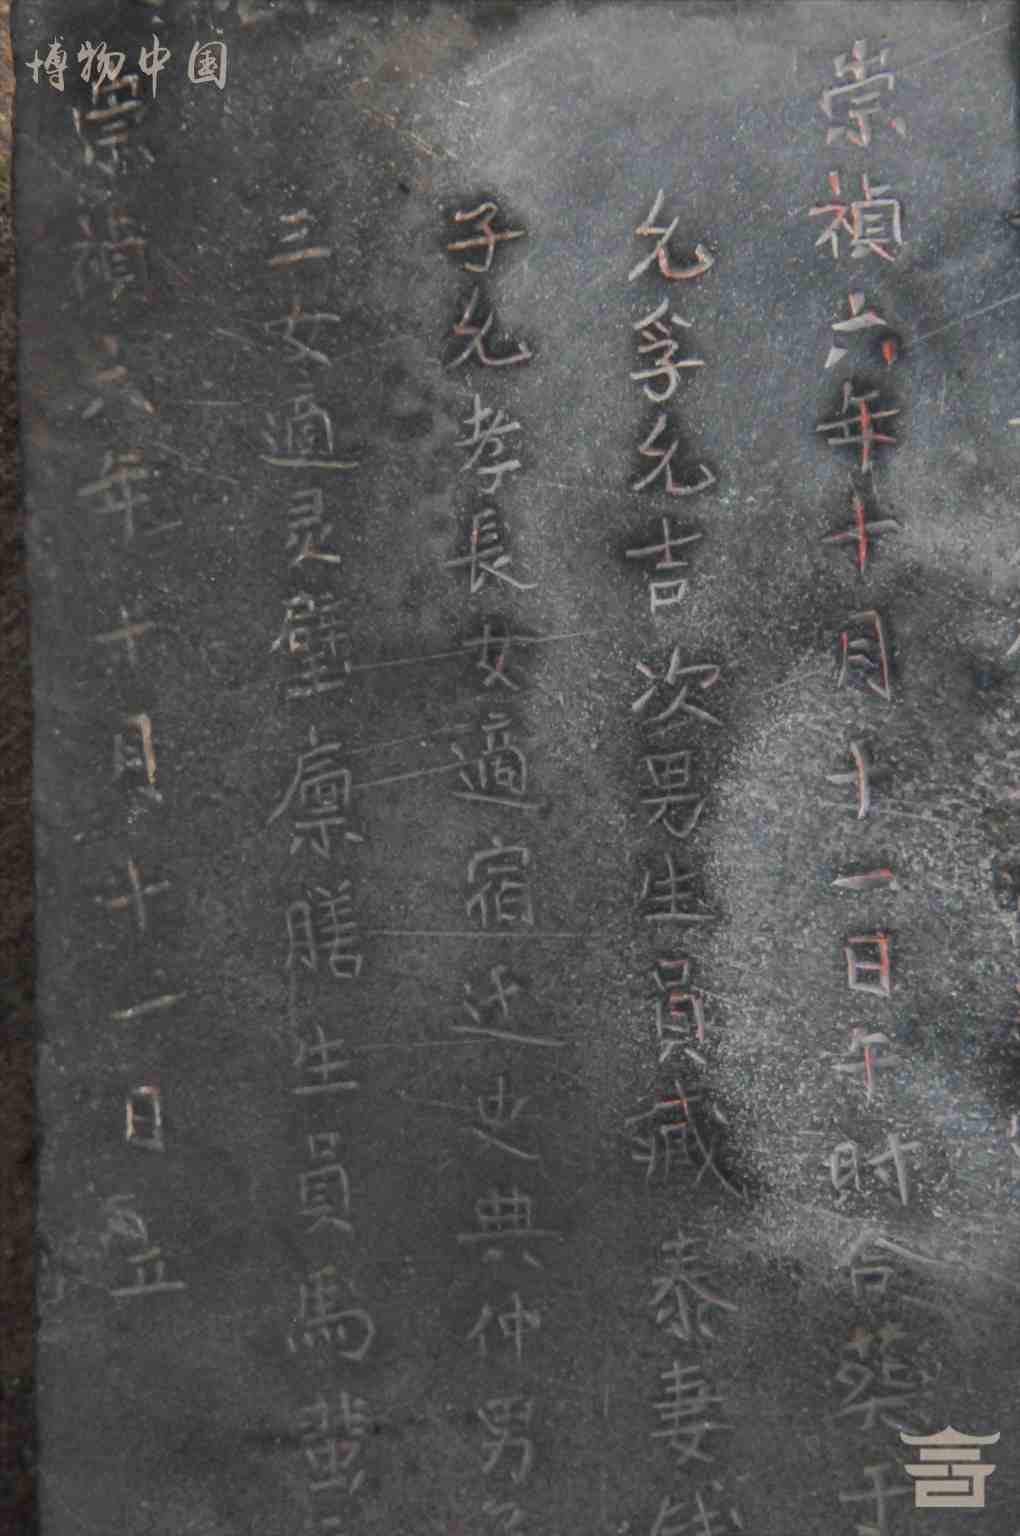 博物中国
崇禎六年十月十一日午时合葬于
允孚允吉次男生員臧泰妻
子允孝長女適宿迁史典仲男
三女適灵壁廪膳生員馬蜚
崇禎六年十月十一日立